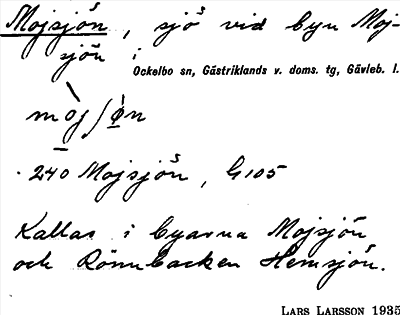 Mojsjön, sjö vid byn Moj-
sjön i
Ockelbo sn, Gästriklands v. doms. tg, Gävleb. l.
mòjʃø̀n
· 240 Mojsjön, G 105
Kallas i byarna Mojsjön
och Rönnbacken Hemsjön.
LARS LARSSON 1935